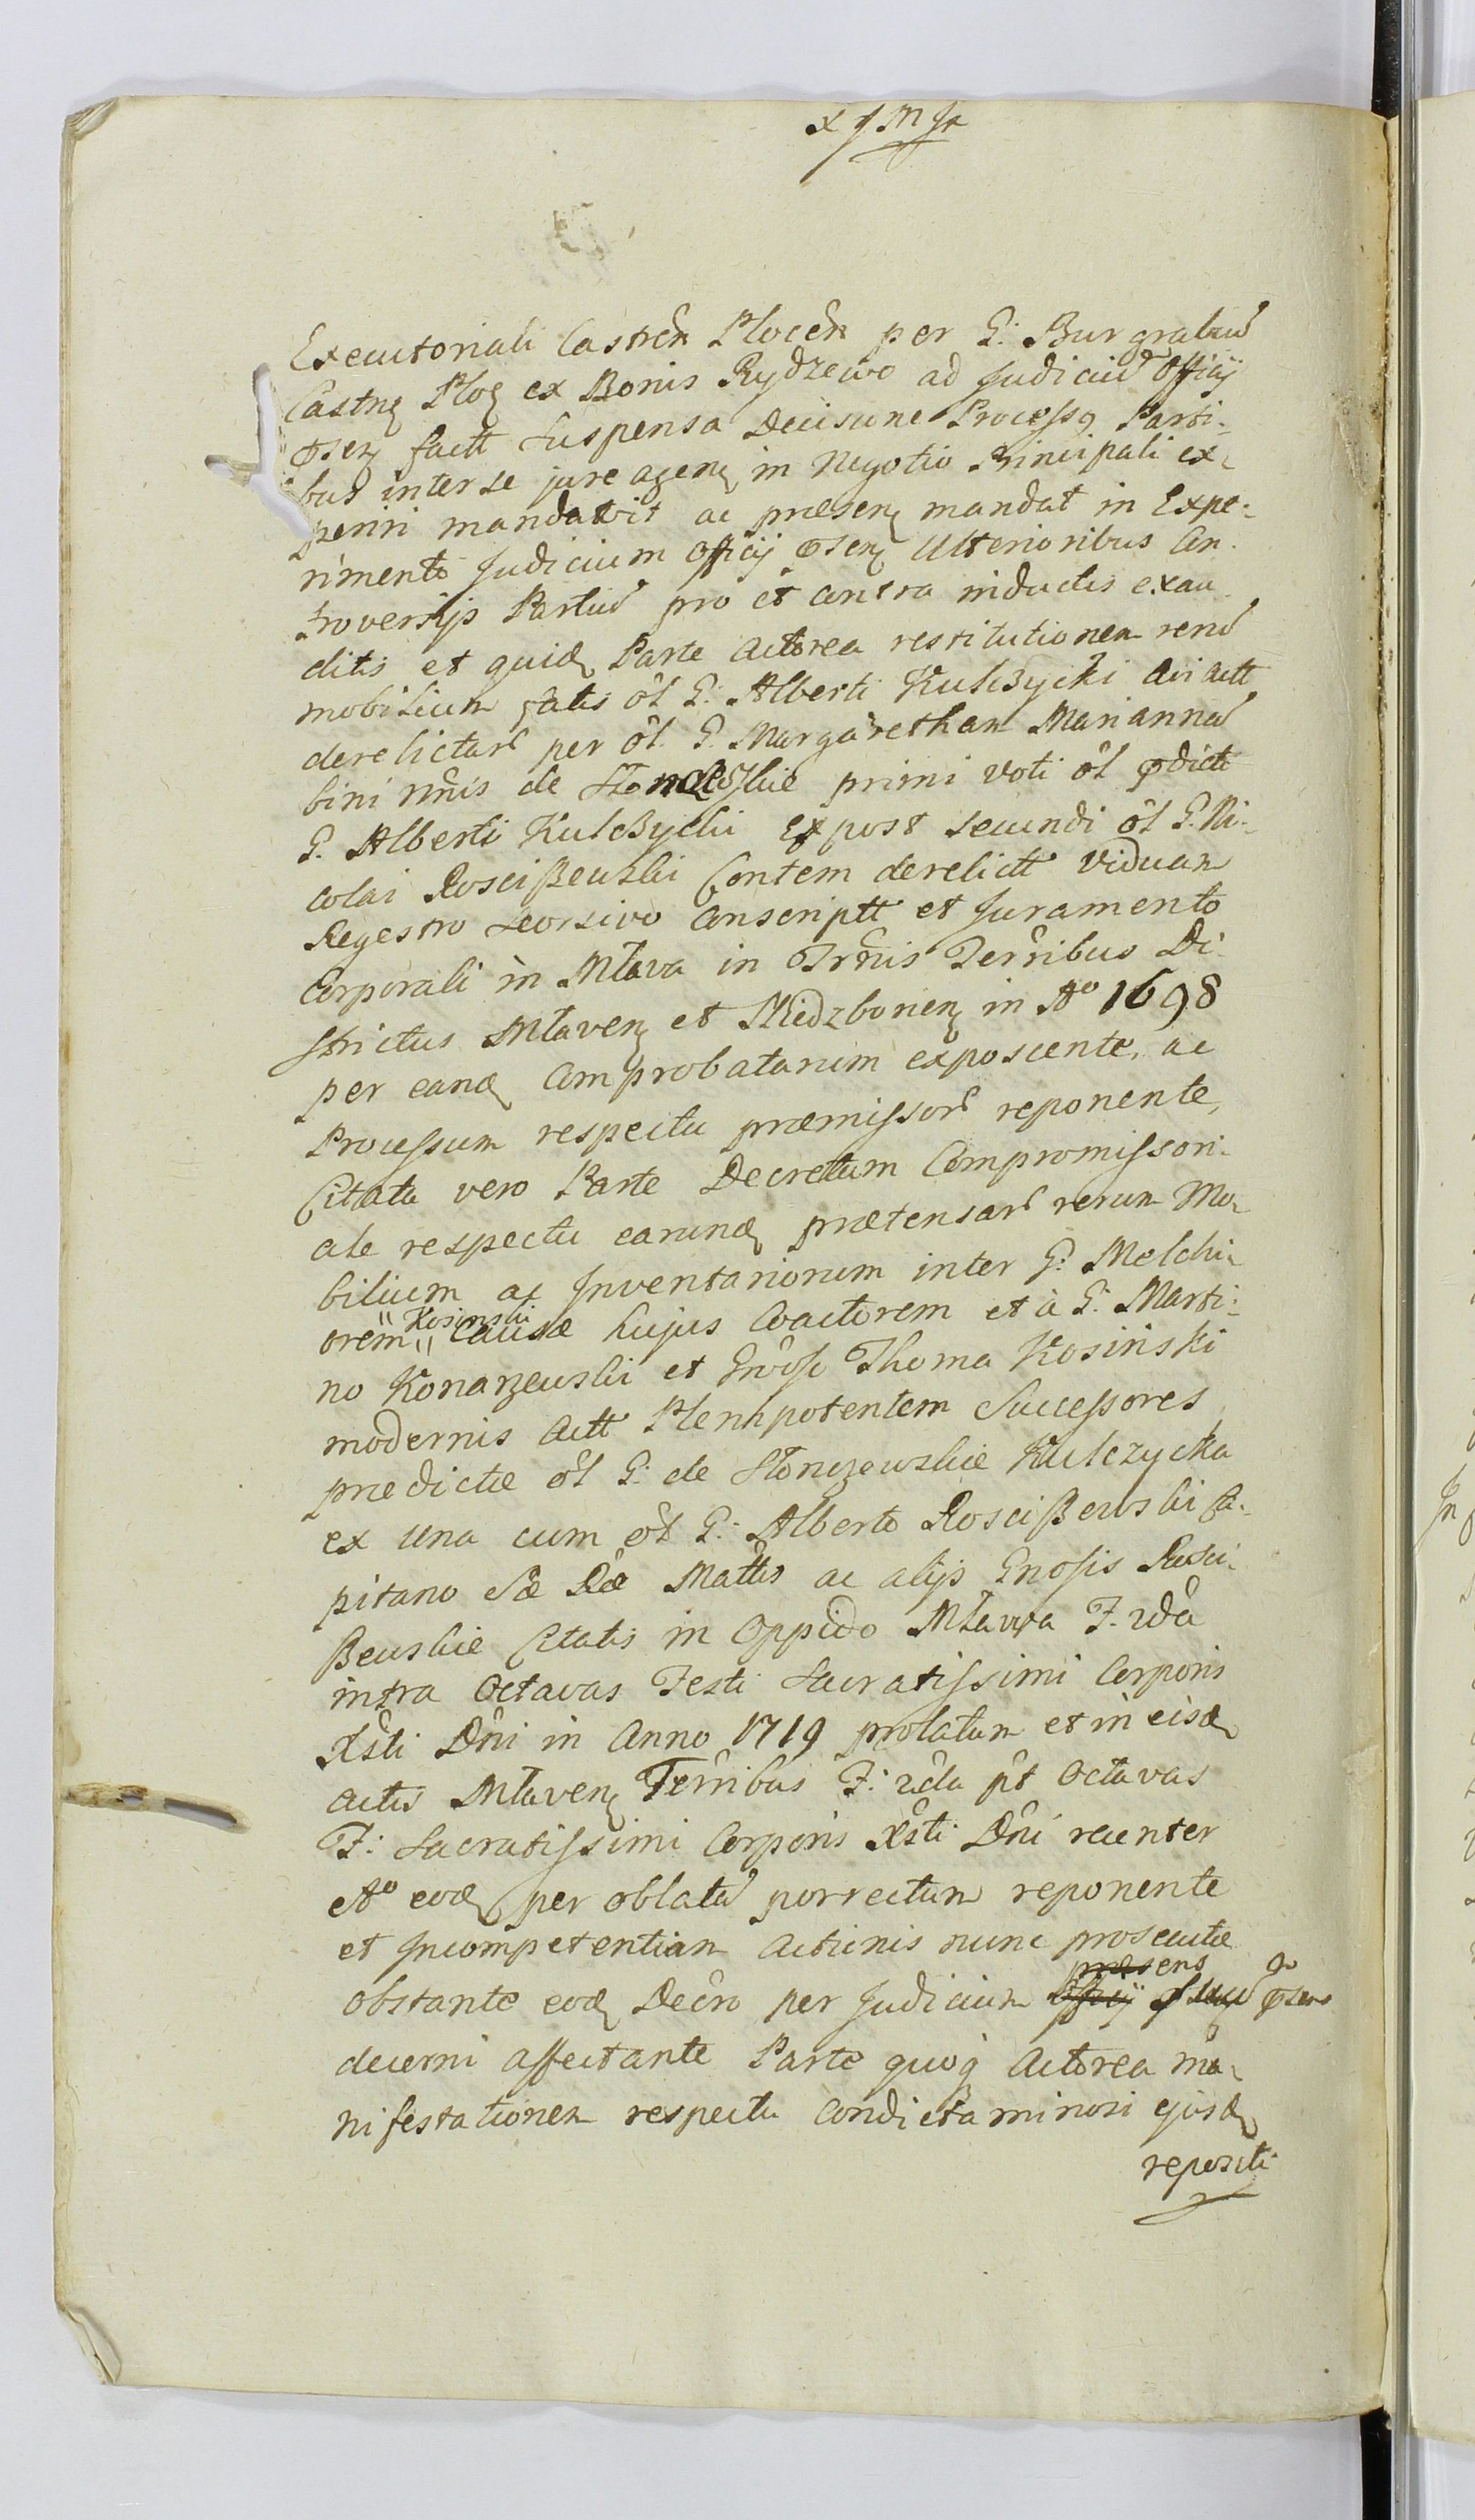 Executoriali Castren Plocen per G: Burgrabiū
Castrę Ploę ex Bonis Rydzewo ad Judiciū Officij
pserę factt Suspensa Decisione Processq Parti-
bus inter se jure agenę in Negotio Principali ex-
periri mandavit ac præsenę mandat in Expe-
rimento Judicium Officij psenę Ulterioribus Con-
troversijs Partiū pro et contra inductis exau-
ditis et quidę Parte Actorea restitutionem rerū
mobilium ol G: Alberti Kulczycki Avi Actt
derelictarū per ol. G. Margaretham Mariannā
bini nnis de primi voti ol pdicti
G. Alberti Kulczycki Ex post secundi ol G. Ni-
colai Roscißewski Contem derelictt Viduam
Regestro Seorsivo Conscriptt et Juramento
Corporali in Mława in Trnis Terribus Di-
strictus Mławenę et Niedzborenę in Ao 1698
per eandę Comprobatarum exposcente, ac
Processum respectu præmissorū reponente,
Citata vero Parte Decretum Compromissori-
ale respectu earundę prætensarū rerum Mo-
bilium ac Inventariorum inter G: Melchi-
orem "Kosinski" Causæ hujus Coactorem et à G: Marti-
no Konarzewski et Gnoso Thoma Kosiński
modernis Actt Plenipotentem Successores
prædictæ ol G: de Słonczewskie Kulczycka
ex una cum ol G: Alberto Roscißewski Ca-
pitano Sæ Ræ Mattis ac alijs Gnosis Rosci-
ßewskie Citatis in Oppido Mława F. 2da
intra Octavas Festi Sacratissimi Corporis
Xsti Dni in Anno 1719 prolatum et in eisdę
Actis Mławenę Terribus F: 2da pt Octavas
F: Sacratissimi Corporis Xsti Dni recenter
Ao eodę per oblatā porrectum reponente
et Incompetentiam Actionis nunc prosecutæ
obstante eodę Decro per Judicium psens
decerni affectante Parte quoq Actorea ma-
nifestationem respectu Condictaminosi ejusdę
repositi